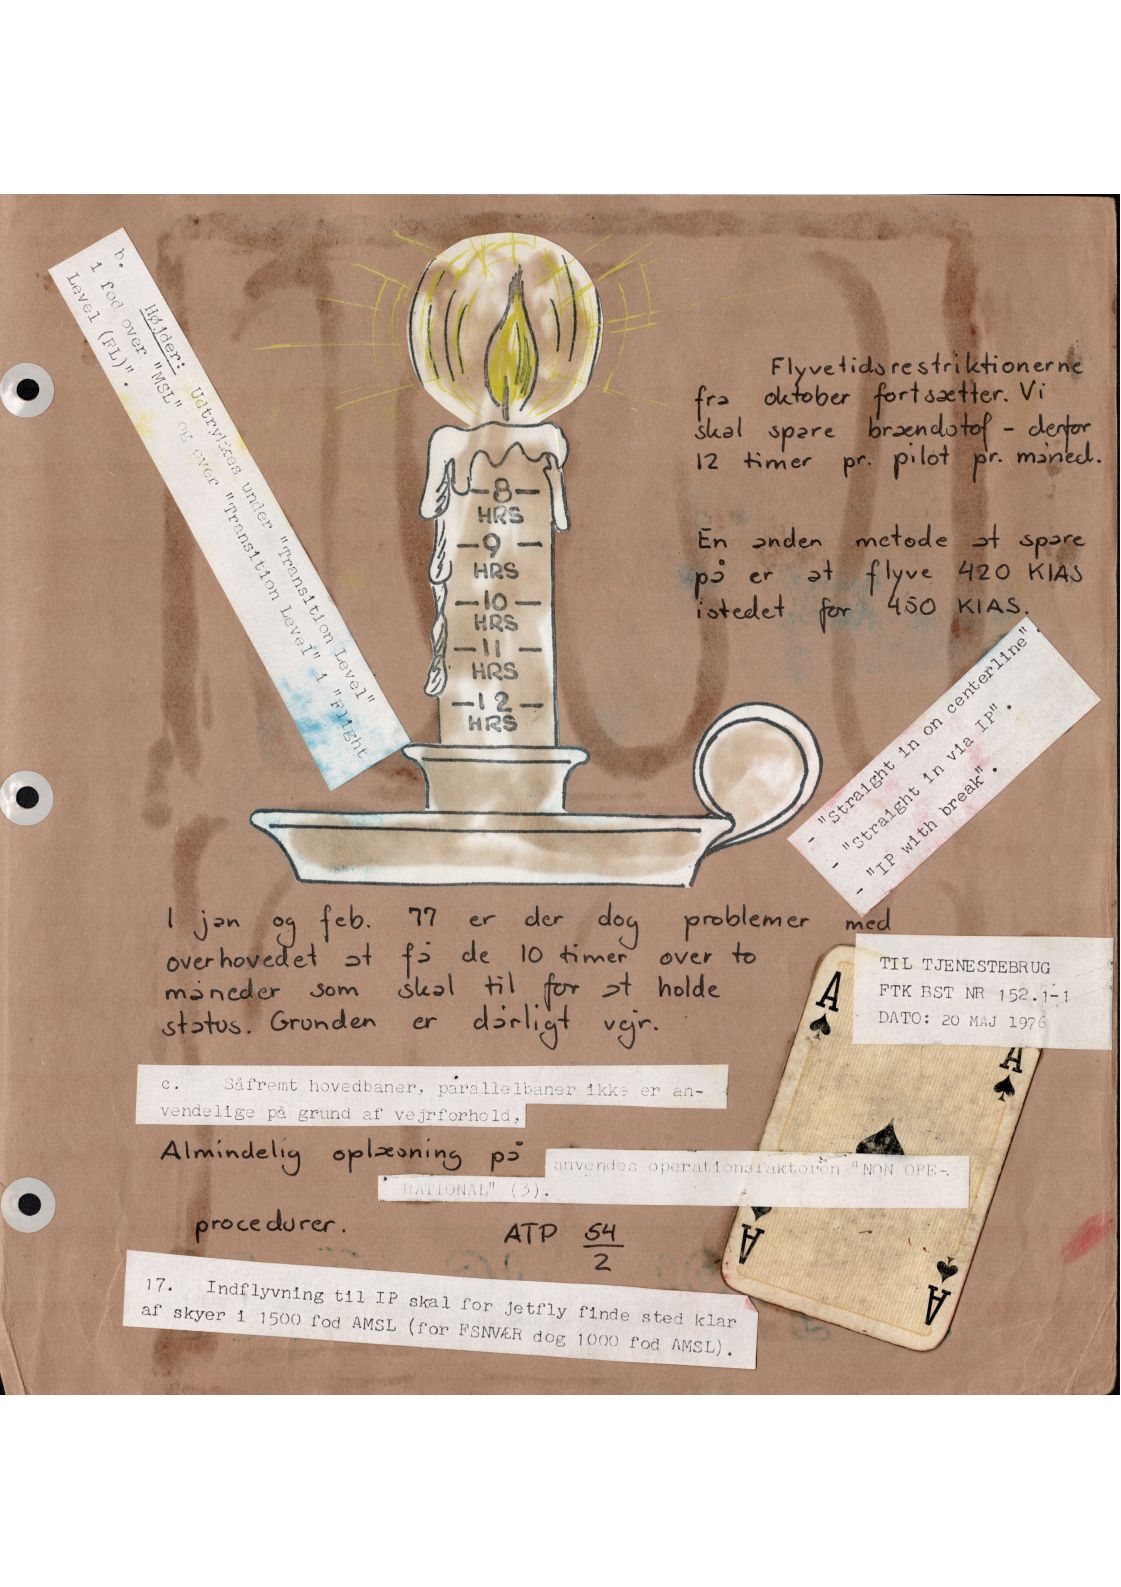 b. Højder: Udtrykkes under "Transition Level"
i fod over "MSL" og over "Transition Level" i "Flight
Level (FL)".
8
HRS
9
HRS
10
HRS
11
HRS
12
HRS
Flyvetidsrestriktionerne
fra oktober fortsætter. Vi
skal spare brændstof - derfor
12 timer pr. pilot pr. måned.
En anden metode at spare
på er at flyve 420 KIAS
istedet for 450 KIAS.
- "Straight in on centerline".
- "Straight in via IP".
- "IP with break".
I jan og feb. 77 er der dog problemer med
overhovedet at få de 10 timer over to
måneder som skal til for at holde
status. Grunden er dårligt vejr.
TIL TJENESTEBRUG
FTK BST NR 152.1-1
DATO: 20 MAJ 1976
A
A
A
A
c. Såfremt hovedbaner, parallelbaner ikke er an-
vendelige på grund af vejrforhold,
Almindelig oplæsning på
anvendes operationsfaktoren "NON OPE-
RATIONAL" (3).
procedurer. ATP 54
2
17. Indflyvning til IP skal for jetfly finde sted klar
af skyer i 1500 fod AMSL (for FSNVÆR dog 1000 fod AMSL).